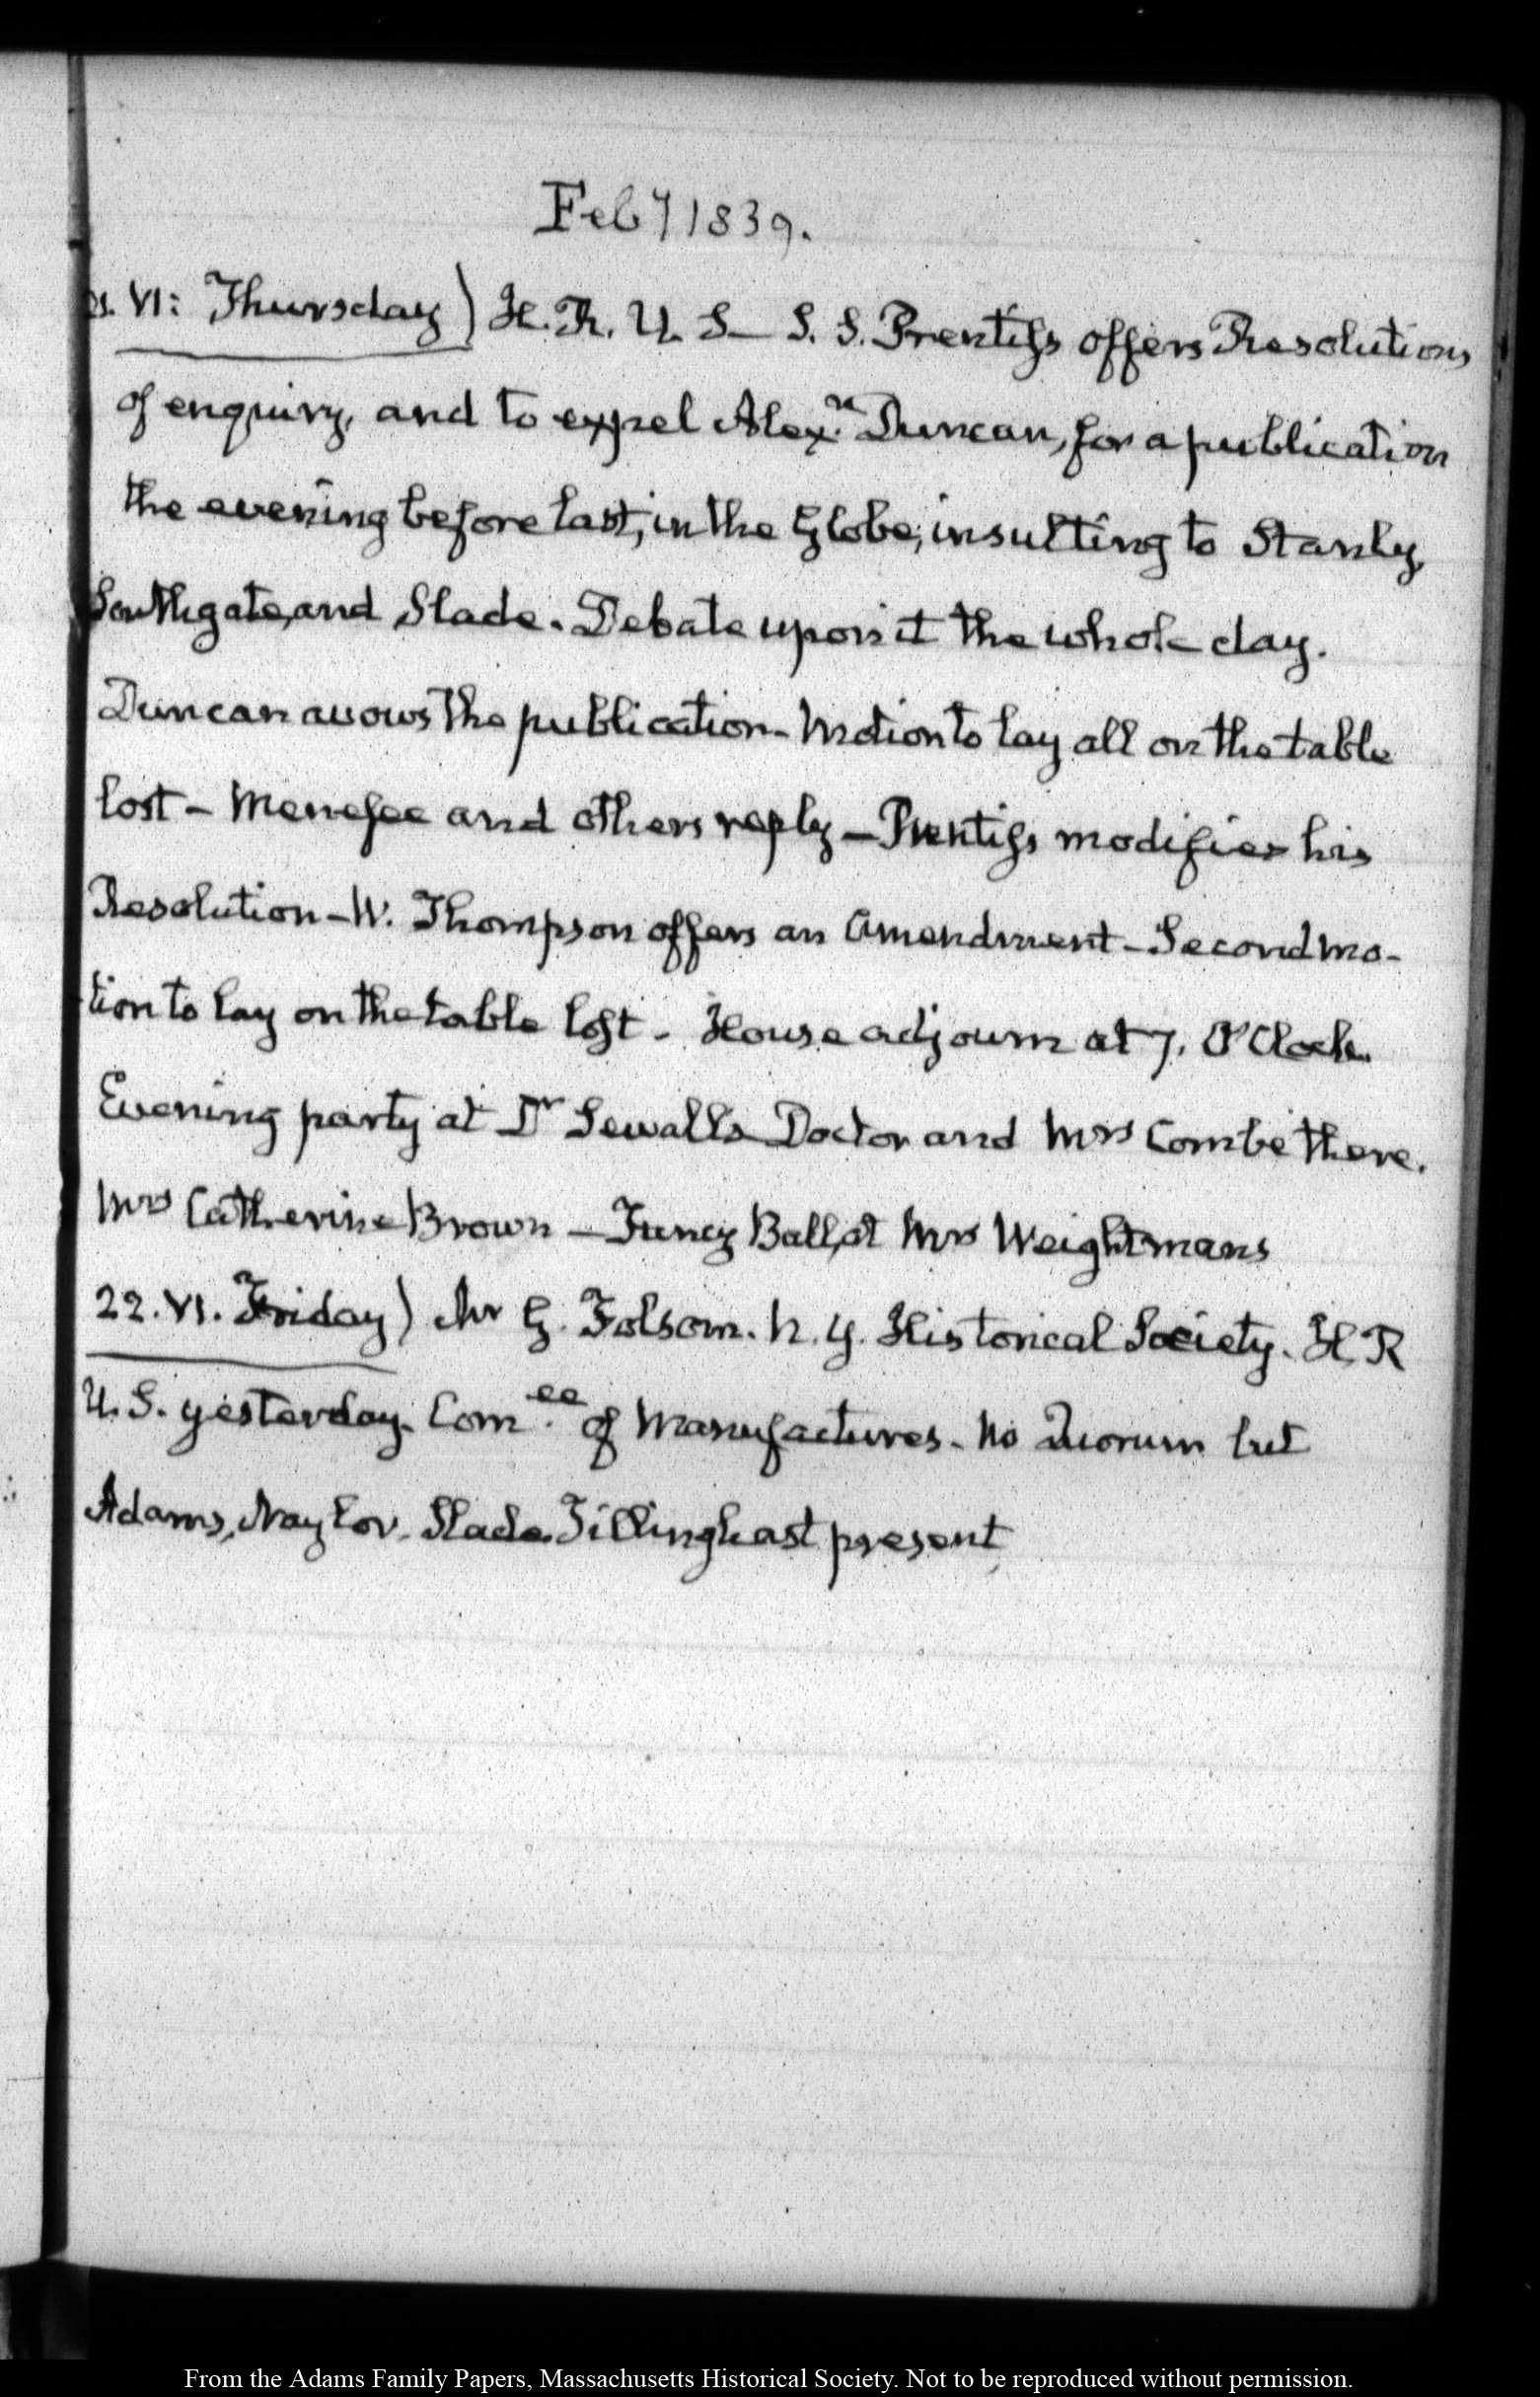 Feby 1839.
21. VI: Thursday) H. R. U. S — S. S. Prentiss offers Resolutions
of enquiry, and to expel Alex.r Duncan, for a publication
the evening before last, in the Globe, insulting to Stanly,
Southgate, and Slade. Debate upon it the whole day.
Duncan avows the publication — Motion to lay all on the table
lost — Menefee and others reply — Prentiss modifies his
Resolution — W. Thompson offers an amendment — Second mo-
tion to lay on the table lost — House adjourn at 7. O'Clock.
Evening party at Dr Sewalls Doctor and Mrs Combe there.
Mrs Catherine Brown — Fancy Ball, at Mrs Weightmans
22. VI. Friday) Mr G. Folsom. N. Y. Historical Society. H. R
U. S. yesterday. Com.ee of Manufactures. No Quorum but
Adams, Naylor. Slade. Tillinghast present
From the Adams Family Papers, Massachusetts Historical Society. Not to be reproduced without permission.